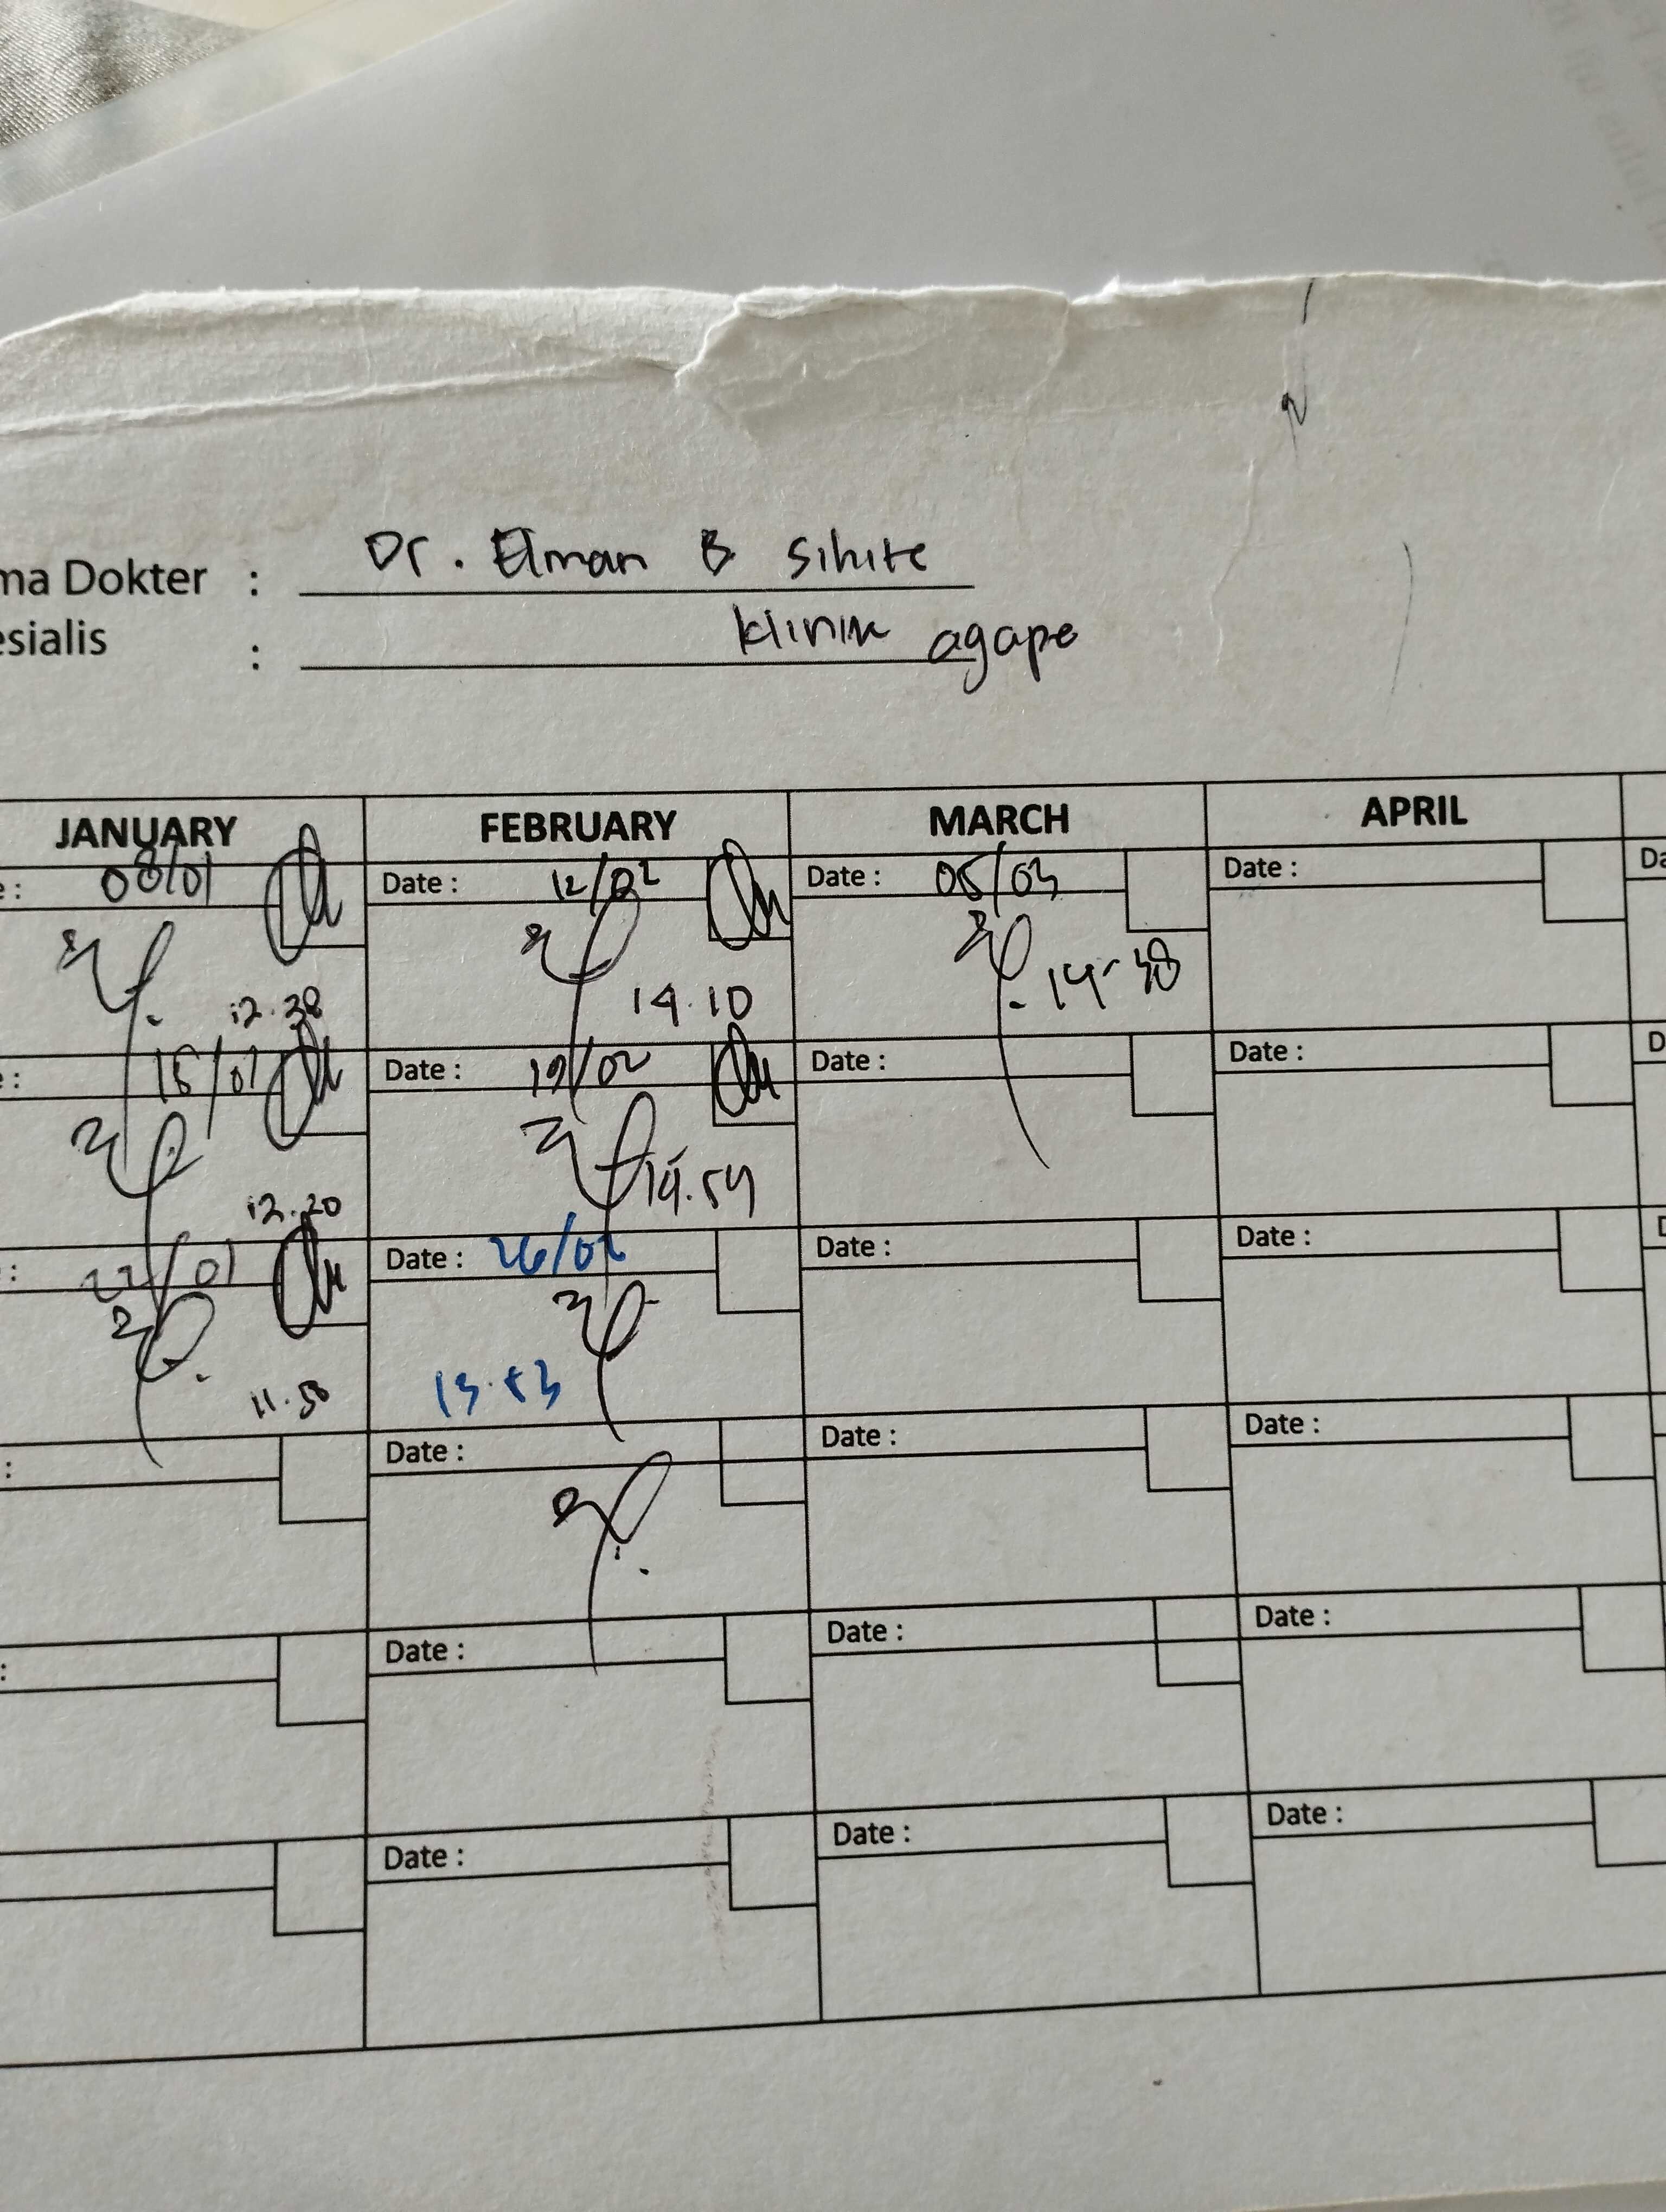 ma Dokter : Dr. Elman B Sihite
esialis : klinik agape
JANUARY FEBRUARY MARCH APRIL
e : 08/01 Date : 12/02 Date : 05/03 Date : Da
12.38 14.10 14-38
e : 15/01 Date : 19/02 Date : Date : D
12.20 14.54
: 22/01 Date : 26/02 Date : Date : D
11.50
: Date : Date : Date :
: Date : Date : Date :
Date : Date : Date :